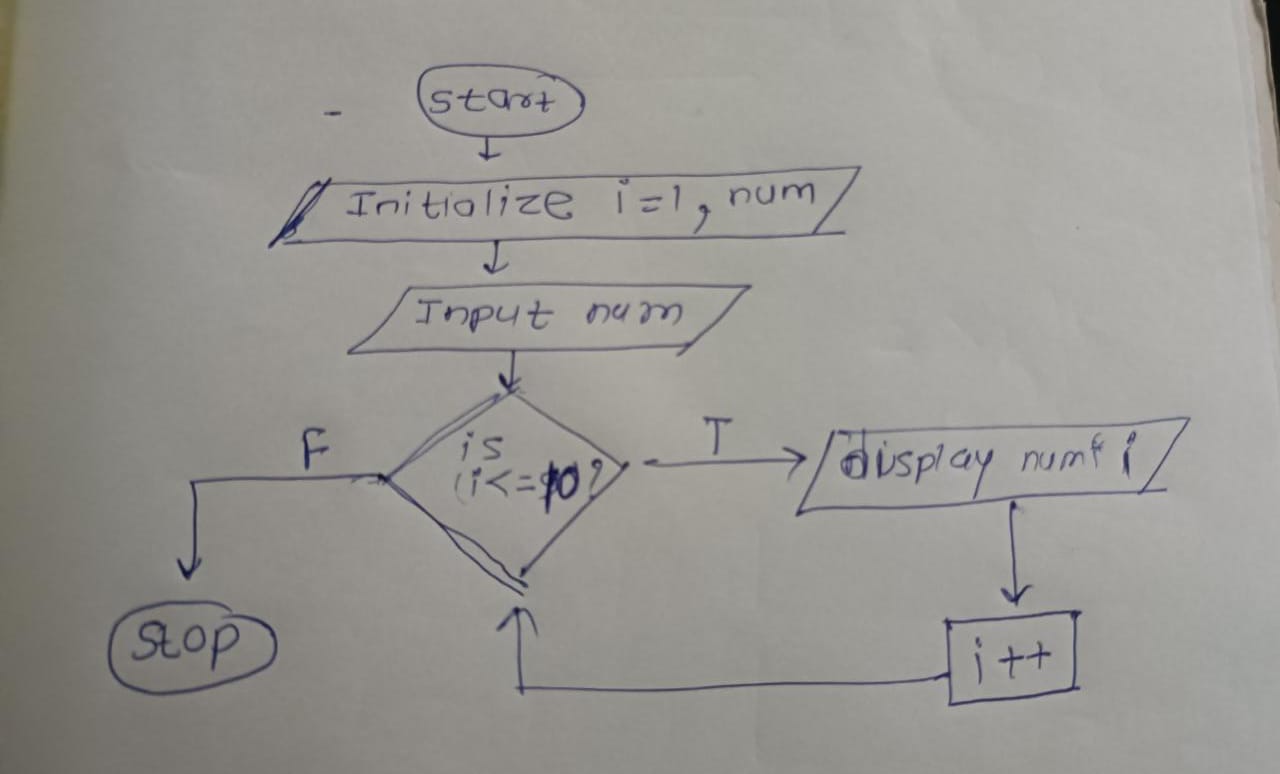 start
Initialize i=1, num
Input num
F
is
(i<=10?
T
display num* i
stop
i++